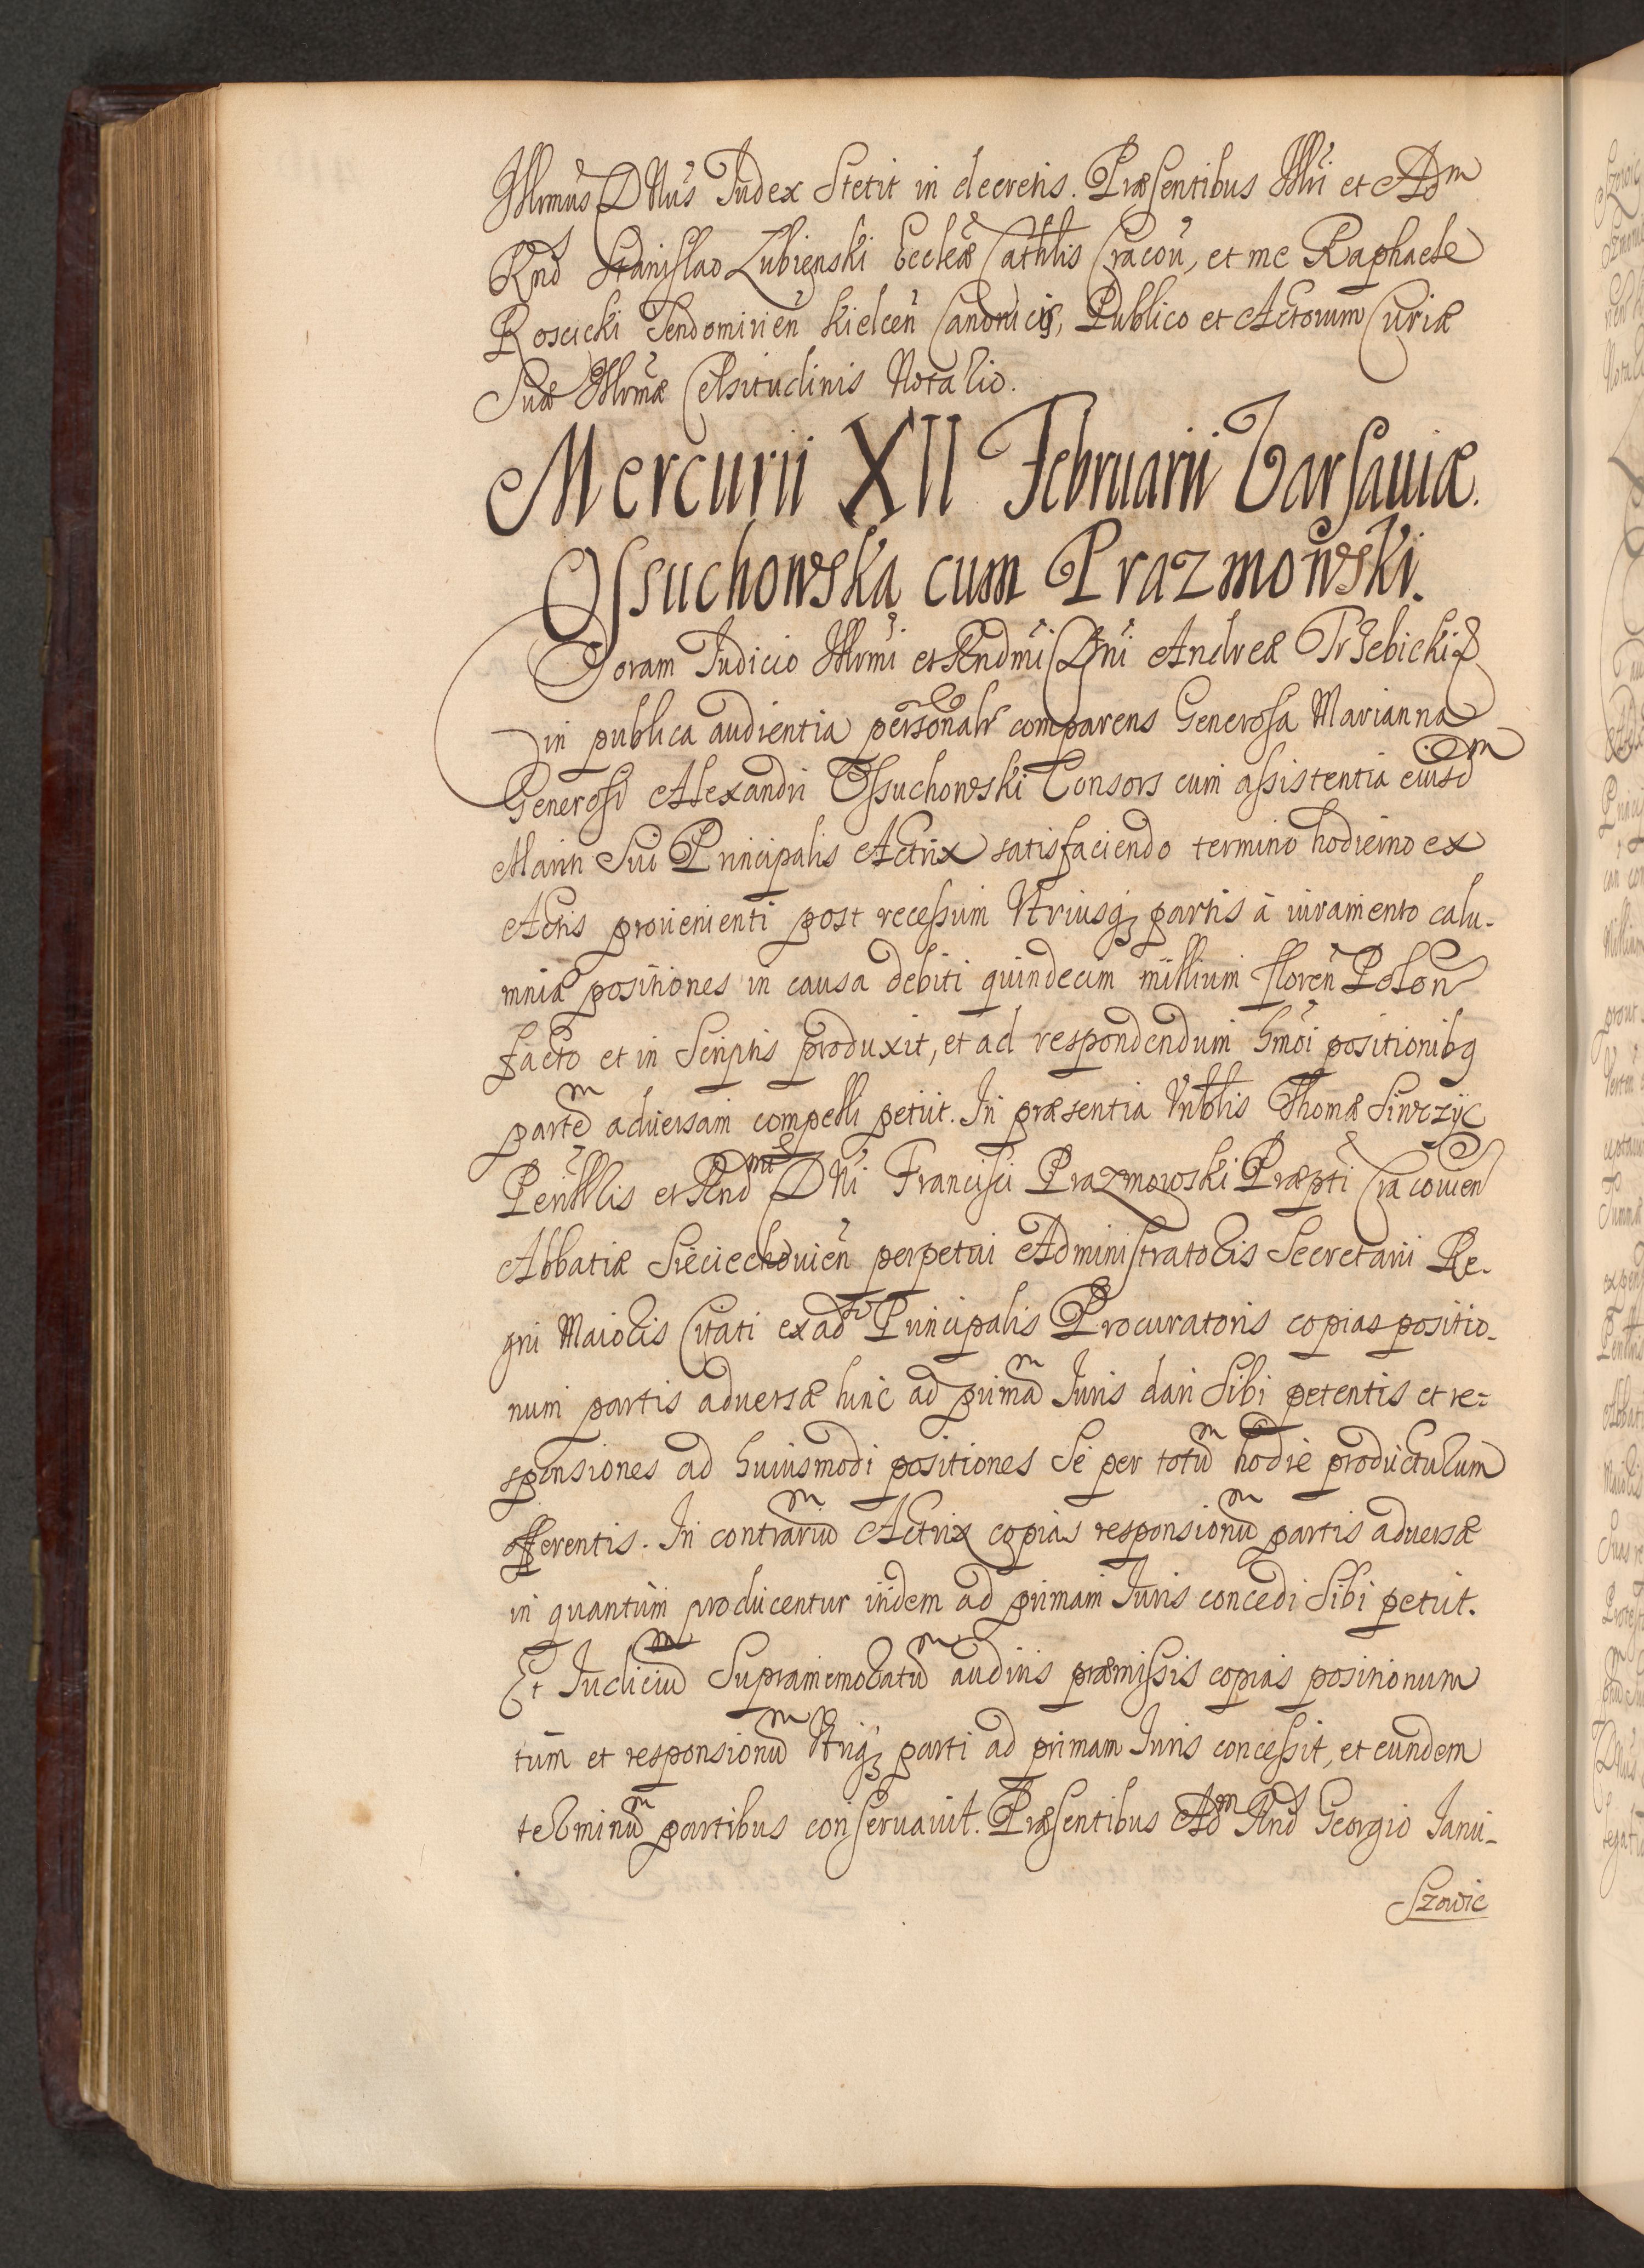 Illrmus DNus Iudex Stetit in decretis. Præsentibus Illri et Adm
Rnd Stanislao Lubienski Eccleæ Cathlis Cracou, et me Raphaele
Roscicki Sendomirien Kielcen Canonicis, Publico et Actorum Curiæ
Suæ Illrmæ Celsitudinis Notario.
Mercurii XII Februarii Varsauiæ.
Ossuchowska cum Prazmowski.
Coram Iudicio Illrmi et Rndmi Dni Andreæ Trzebicki &
in publica audientia personalr comparens Generosa Marianna
Generosi Alexandri Ossuchowski Consors cum assistentia eiusdm
Mariti Sui Principalis Actrix satisfaciendo termino hodierno ex
Actis prouenienti post recessum Vtriusq partis à iuramento calu-
mniæ positiones in causa debiti quindecim millium floren Polon
facto et in Scriptis produxit, et ad respondendum hmoi positionibq
partem aduersam compelli petiit. In præsentia Nrblis Thomæ Siwczyc
Perillris et Rndmi DNi Francisci Prazmowski Præpti Cracouien
Abbatiæ Sieciechouien perpetui Administratoris Secretarii Re-
gni Maioris Citati ex adto Principalis Procuratoris copias positio-
num partis aduersæ hinc ad primam Iuris dari Sibi petentis et re=
sponsiones ad huiusmodi positiones Se per totum hodie producturum
offerentis. In contrarium Actrix copias responsionum partis aduersæ
in quantum producentur itidem ad primam Iuris concedi Sibi petiit.
Et Iudicium Supramemoratum auditis præmissis copias positionum
tum et responsionum Vtriq parti ad primam Iuris concessit, et eundem
terminum partibus conseruauit. Præsentibus Adm Rnd Georgio Ianu-
Szowic